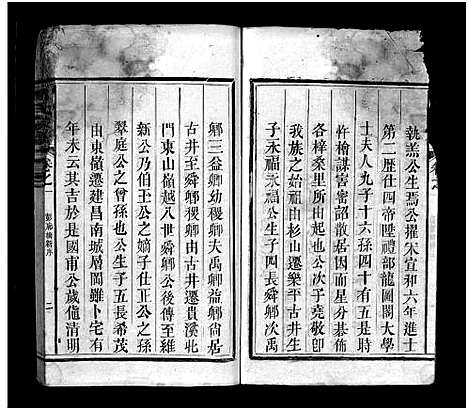 執羔公生焉公擢宋宣和六年進士
第二歷仕四帝陞禮部龍圖閣大學
士夫人九子十六孫四十有五是時
忤檜謀害密詔散居因而星分碁佈
各梓桑里所由起也公次子堯敬卽
我族之始祖由杉山遷樂平古井生
子永福永福公生子四長舜鄉次禹
鄉三益鄉幼稷鄉夫禹鄉益鄉尙居
古井至舜鄉稷鄉由古井遷貴溪北
門東山嶺越八世舜鄉公後傳至維
新公乃伯王公之嫡子仕正公之孫
翠庭公之曾孫也公生子五長希茂
由東嶺遷建昌南城層閬雖卜宅有
年未云其吉於是國甫公歲値清明
卷之一
二